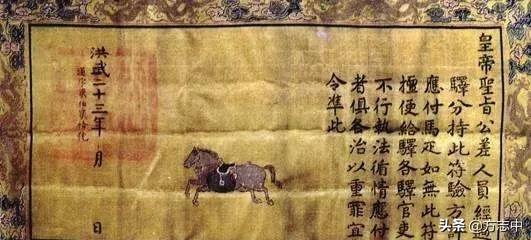 皇帝聖旨公差人員經過
驛分持此符驗方許
應付馬疋如無此符
擅便給驛各驛官吏
不行執法徇情應付
者俱各治以重罪宜
令準此
洪武二十三年 月 日
头条 @方志中